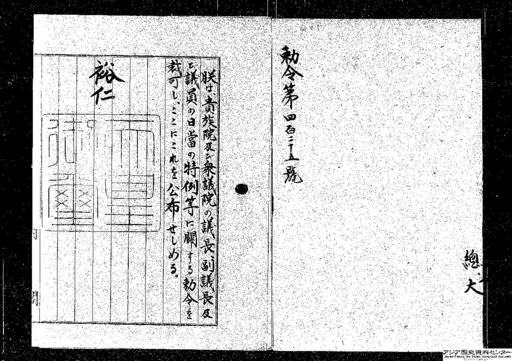 勅令第四百二十五號
總、大
朕は貴族院及び衆議院の議長、副議長及
び議員の日當の特例等に關する勅令を
裁可し、ここにこれを公布せしめる。
裕仁
天皇
御璽
アジア歴史資料センター